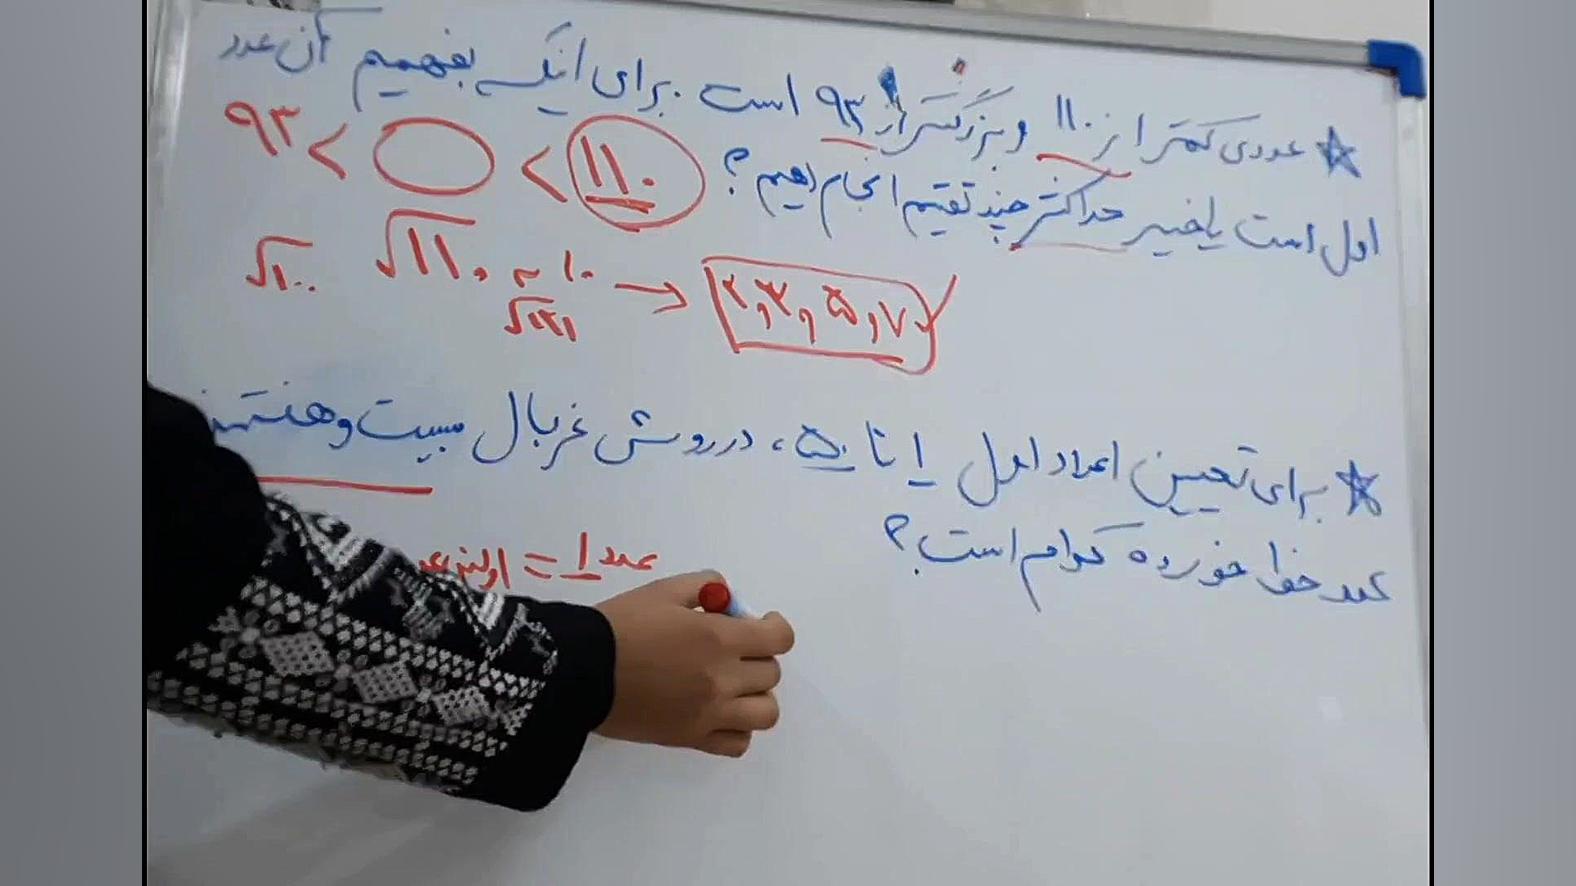 عددی کمتر از ۱۱۰ و بزرگتر از ۹۳ است. برای اینکه بفهمیم آن عدد
اول است یا خیر حداکثر چند تقسیم انجام دهیم؟
۹۳ < < ۱۱۰
√۱۰۰ √۱۱۰ ~ ۱۰ → ۲, ۳, ۵, ۷
√۱۲۱
برای تعیین اعداد اول ۱ تا ۵۰، در روش غربال بیست و هفتمین
عدد خط خورده کدام است؟
عدد ۱ = اولین